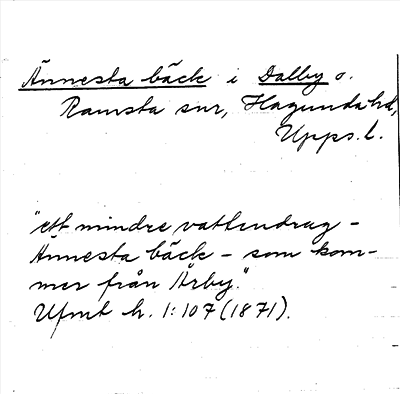 Ännesta bäck i Dalby o.
Ramsta snr, Hagunda hd,
Upps. l.
"ett mindre vattendrag -
Ännesta bäck - som kom-
mer från Årby."
Ufmt h. 1:107 (1871).